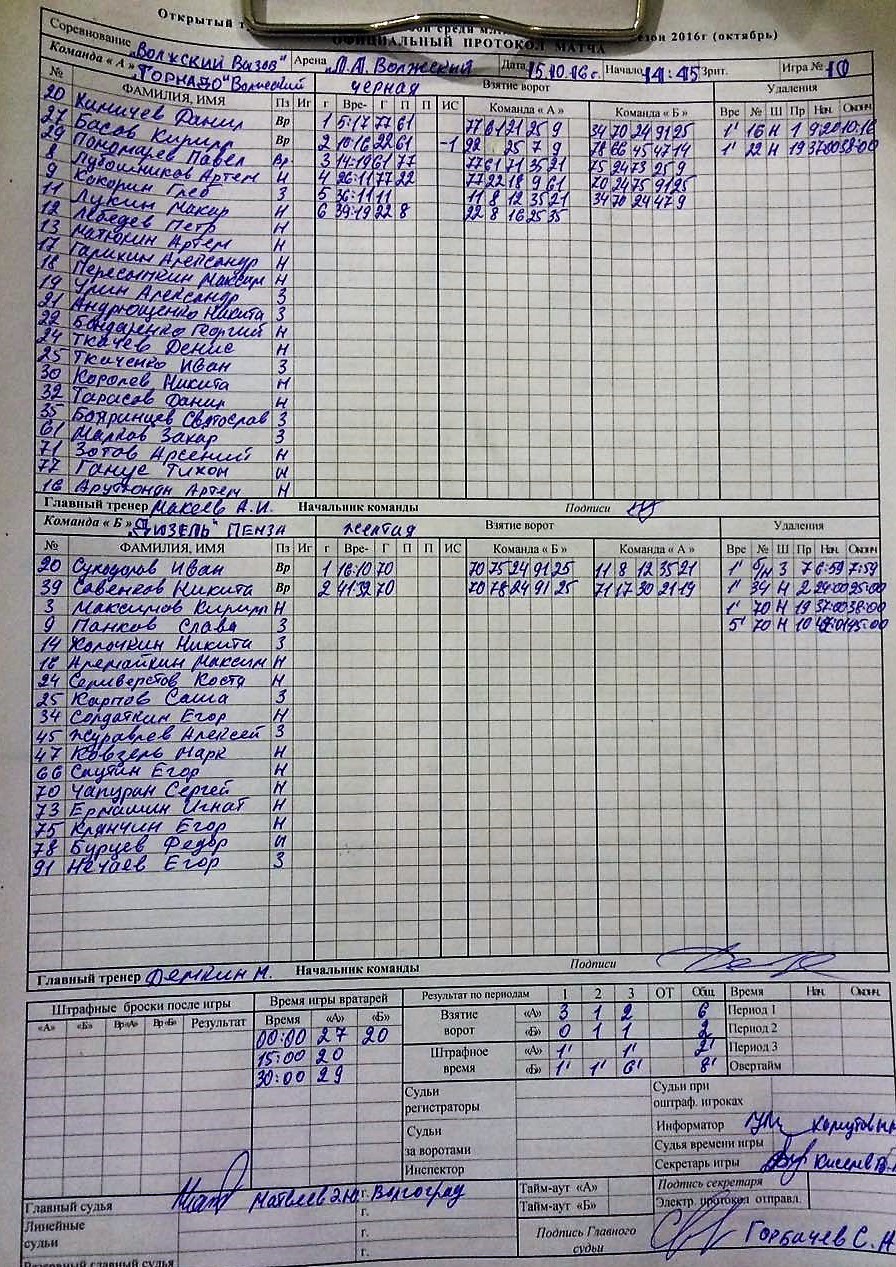 Открытый
среди
сезон 2016г (октябрь)
ОФИЦИАЛЬНЫЙ ПРОТОКОЛ МАТЧА
Соревнование „Волжский Вызов" Арена Л.А. Волжский Дата 15.10.16г. Начало 14:45 Зрит. Игра № 10
Команда « А » „ТОРНАДО" Волжский черная Взятие ворот Удаления
№ ФАМИЛИЯ, ИМЯ Пз Иг г Вре- Г П П ИС Команда « А » Команда « Б » Вре № Ш Пр Нач. Оконч.
20 Химичев Данил Вр 1 5:17 77 61 77 61 21 25 9 34 70 24 91 25 1' 16 Н 1 9:20 10:16
27 Басов Кирилл Вр 2 10:16 22 61 -1 22 25 7 9 78 66 45 47 14 1' 22 Н 19 37:00 38:00
29 Пономарев Павел Вр. 3 14:19 61 77 77 61 71 35 21 75 24 73 25 9
8 Лубошников Артем Н 4 26:11 77 22 77 22 18 9 61 70 24 75 91 25
9 Кокорин Глеб З 5 36:11 11 11 8 12 35 21 34 70 24 47 9
11 Лукин Макар Н 6 39:19 22 8 22 8 16 25 35
12 Лебедев Петр Н
13 Матюкин Артем Н
17 Галикин Александр Н
18 Пересыпкин Максим Н
19 Урин Александр З
21 Андрющенко Никита З
22 Бондаренко Георгий Н
24 Ткачев Денис Н
25 Ткаченко Иван З
30 Королев Никита Н
32 Тарасов Данил Н
35 Бояринцев Святослав З
61 Марков Захар З
71 Зотов Арсений Н
77 Ганус Тихон Н
16 Арутюнян Артем Н
Главный тренер Макеев А.И. Начальник команды Подписи
Команда « Б » „ДИЗЕЛЬ" ПЕНЗА желтая Взятие ворот Удаления
№ ФАМИЛИЯ, ИМЯ Пз Иг г Вре- Г П П ИС Команда « Б » Команда « А » Вре № Ш Пр Нач. Оконч.
20 Суходолов Иван Вр 1 16:10 70 70 75 24 91 25 11 8 12 35 21 1' З 7 6:59 7:59
39 Савенков Никита Вр 2 41:32 70 70 78 24 91 25 71 17 30 21 19 1' 34 Н 2 24:00 25:00
3 Максимов Кирилл Н 1' 70 Н 19 37:00 38:00
9 Панков Слава З 5' 70 Н 10 45:00
14 Колочкин Никита З
18 Алемайкин Максим Н
24 Селиверстов Костя Н
25 Карпов Саша З
34 Солдаткин Егор Н
45 Журавлев Алексей З
47 Ковзель Марк Н
66 Спутин Егор Н
70 Чапуран Сергей Н
73 Ермашин Игнат Н
75 Клянчин Егор Н
78 Бурцев Федор Н
91 Нечаев Егор З
Главный тренер Демкин М. Начальник команды Подписи
Штрафные броски после игры Время игры вратарей Результат по периодам 1 2 3 ОТ Общ. Время Нач. Оконч.
«А» «Б» Вр«А» Вр«Б» Результат Время «А» «Б» Взятие ворот «А» 3 1 2 6 Период 1
00:00 27 20 «Б» 0 1 1 2 Период 2
15:00 20 Штрафное время «А» 1' 1' 2' Период 3
30:00 29 «Б» 1' 1' 6' 8' Овертайм
Судьи регистраторы Судьи при оштраф. игроках
Судьи за воротами Информатор
Судья времени игры
Инспектор Секретарь игры
Главный судья Матвеев Э.Ю. г. Волгоград Тайм-аут «А» Подпись секретаря
Линейные судьи г. Тайм-аут «Б» Электр. протокол отправл.
г. Подпись Главного судьи Горбачев С. Н
г.
Резервный главный судья